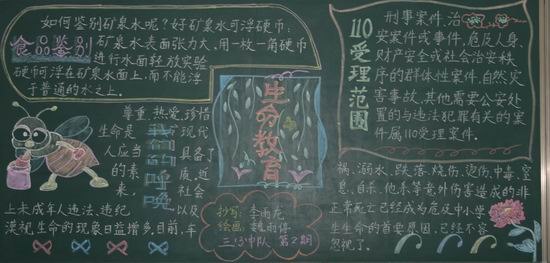 如何鉴别矿泉水呢?好矿泉水可浮硬币:
食品鉴别
矿泉水表面张力大,用一枚一角硬币
进行水面轻放实验
硬币可浮在矿泉水面上,而不能浮
于普通的水之上.
110受理范围
刑事案件、治
安案件或事件,危及人身、
财产安全或社会治安秩
序的群体性案件,自然灾
害事故,其他需要公安处
置的与违法犯罪有关的案
件属110受理案件.
生命教育
我们的呼唤
尊重、热爱、珍惜
生命是
现代
人应当
具备了
的素
质,近
来,
社会
以及
上未成年人违法、违纪
漠视生命的现象日益增多,目前,车
祸、溺水、跌落、烧伤、烫伤、中毒、窒
息、自杀、他杀等意外伤害造成的非
正常死亡已经成为危及中小学
生生命的首要原因,已经不容
忽视了.
抄写:李雨龙
绘画:魏雨倩
三(3)中队 第2期